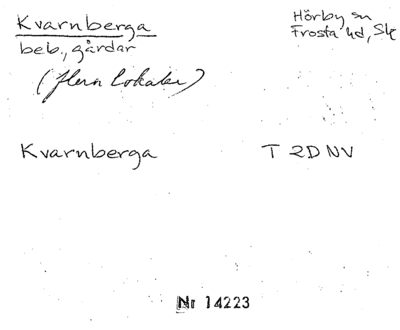 Kvarnberga
Hörby sn
Frosta hd, Sk
beb., gårdar
(flera lokaler)
Kvarnberga T 2D NV
Nr 14223